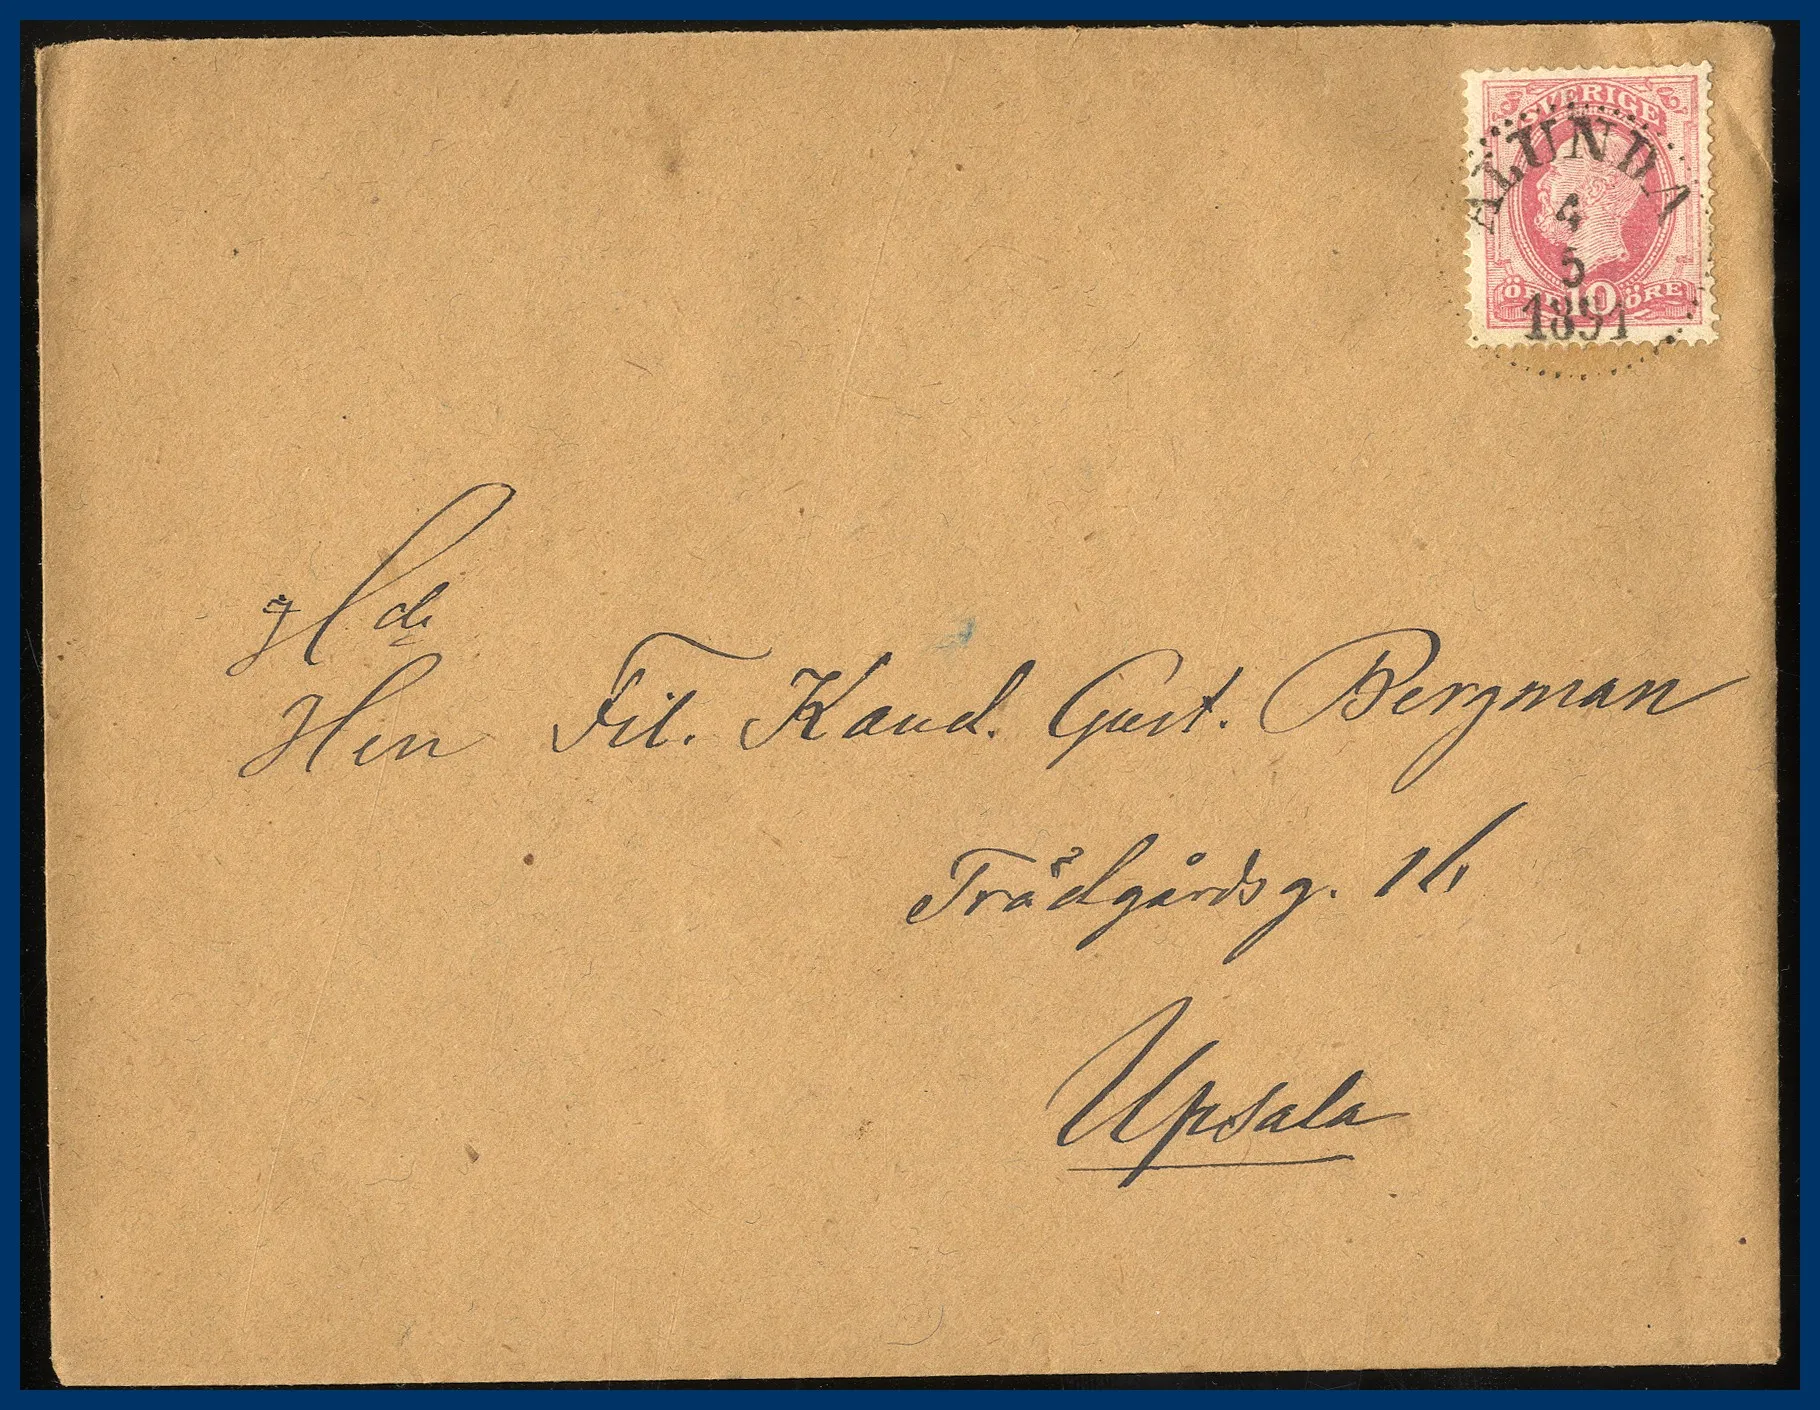 SVERIGE
ALUNDA
4
5
1891
ÖRE 10 ÖRE
Herr Fil. Kand. Gust. Bergman
Trädgårdsg. 16
Upsala